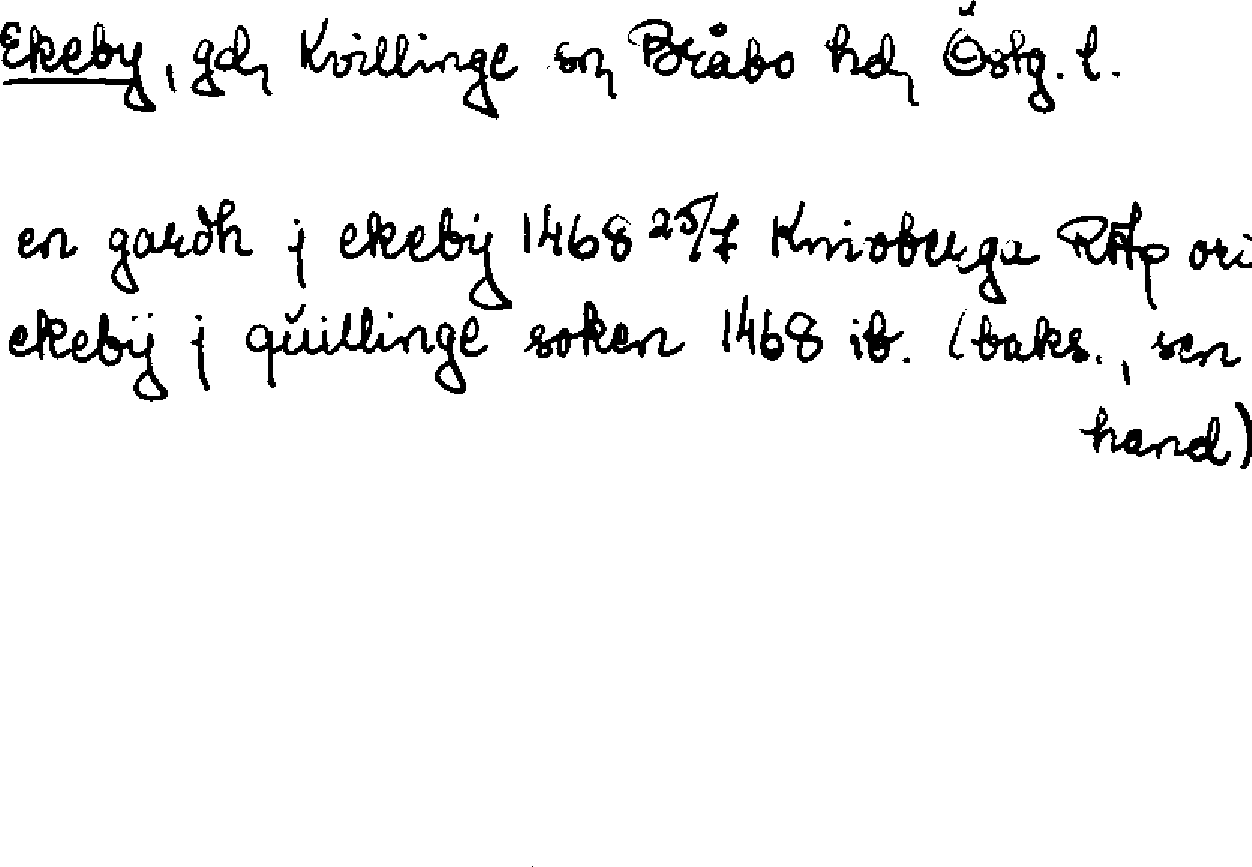 Ekeby, gd, Kvillinge sn, Bråbo hd, Östg. l.
en gardh j ekebÿ 1468 25/7 Kmoberga RAp ori
ekebÿ j qŭillinge soken 1468 ib. (baks., sen
hand)